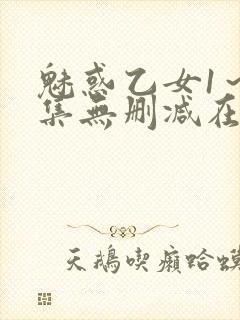 魅惑乙女1～
集無删减在
天鵝喫癩蛤蟆